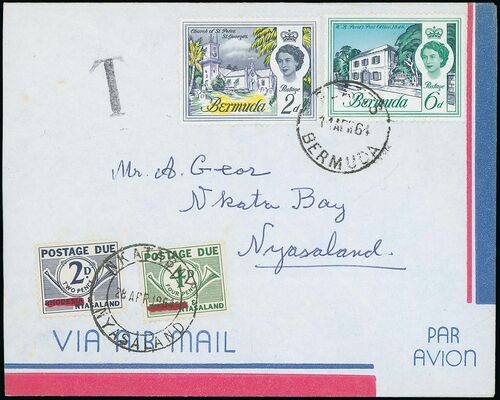 T
Church of St. Peter,
St. George's
Postage
Bermuda 2d
Post Office 1848
Postage
Bermuda 6d
11 APR 64
BERMUDA
Mr. A. Gear
Nkata Bay
Nyasaland.
POSTAGE DUE
2D
TWO PENCE
RHODESIA &
NYASALAND
POSTAGE DUE
4D
FOUR PENCE
&
NYASALAND
NKATA BAY
28 APR 1964
NYASALAND
VIA AIR MAIL
PAR
AVION